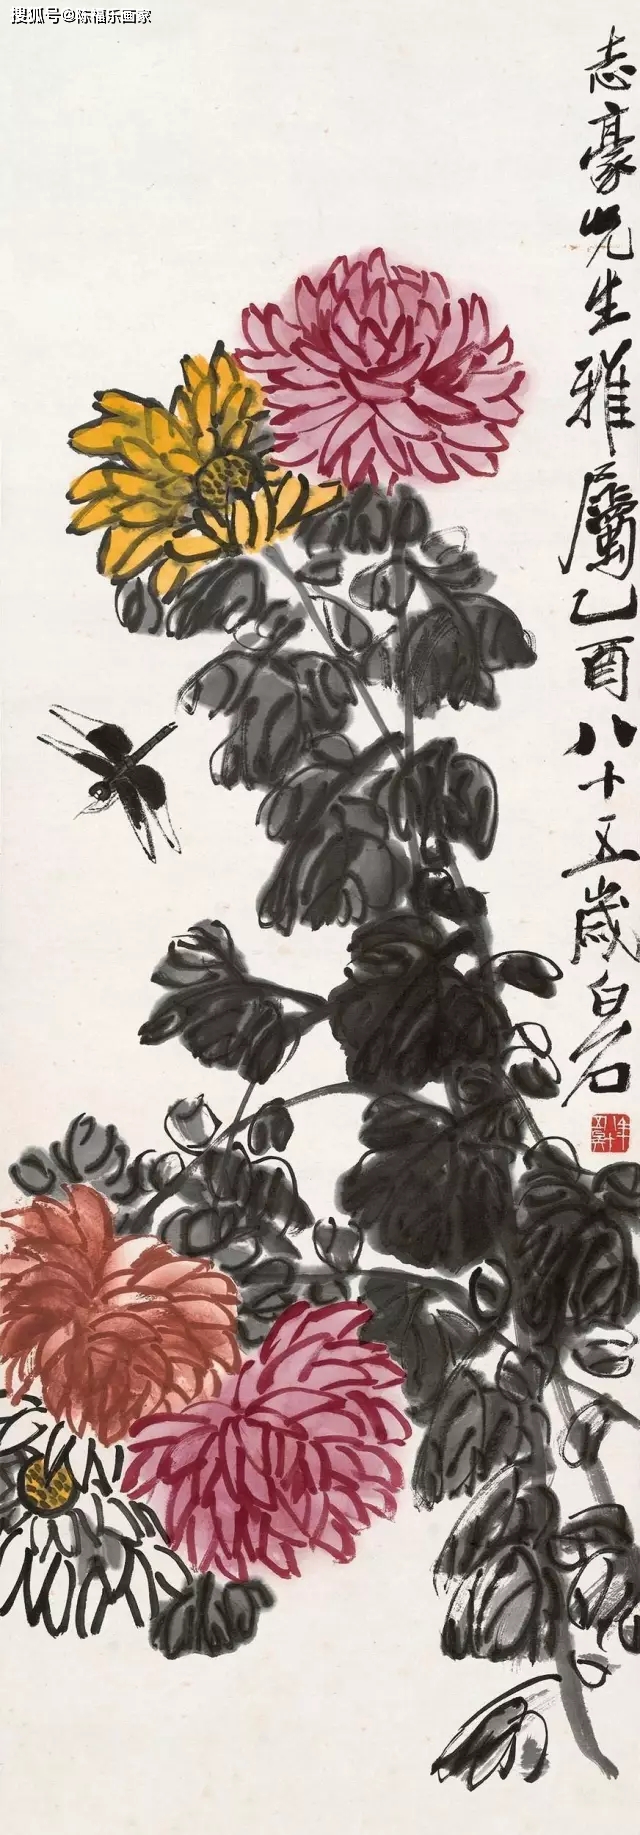 搜狐号@陈福乐画家
志豪先生雅屬乙酉八十五歲白石